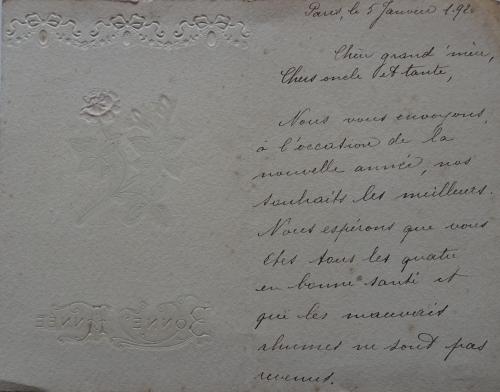 Paris, le 5 Janvier 192
Chèr grand'mèr,
Chers oncle et tante,
Nous vous envoyons,
à l'occasion de la
nouvelle année, nos
souhaits les meilleurs.
Nous espérons que vous
êtes tous les quatre
en bonne santé et
que les mauvais
rhumes ne sont pas
revenus.
BONNE ANNÉE